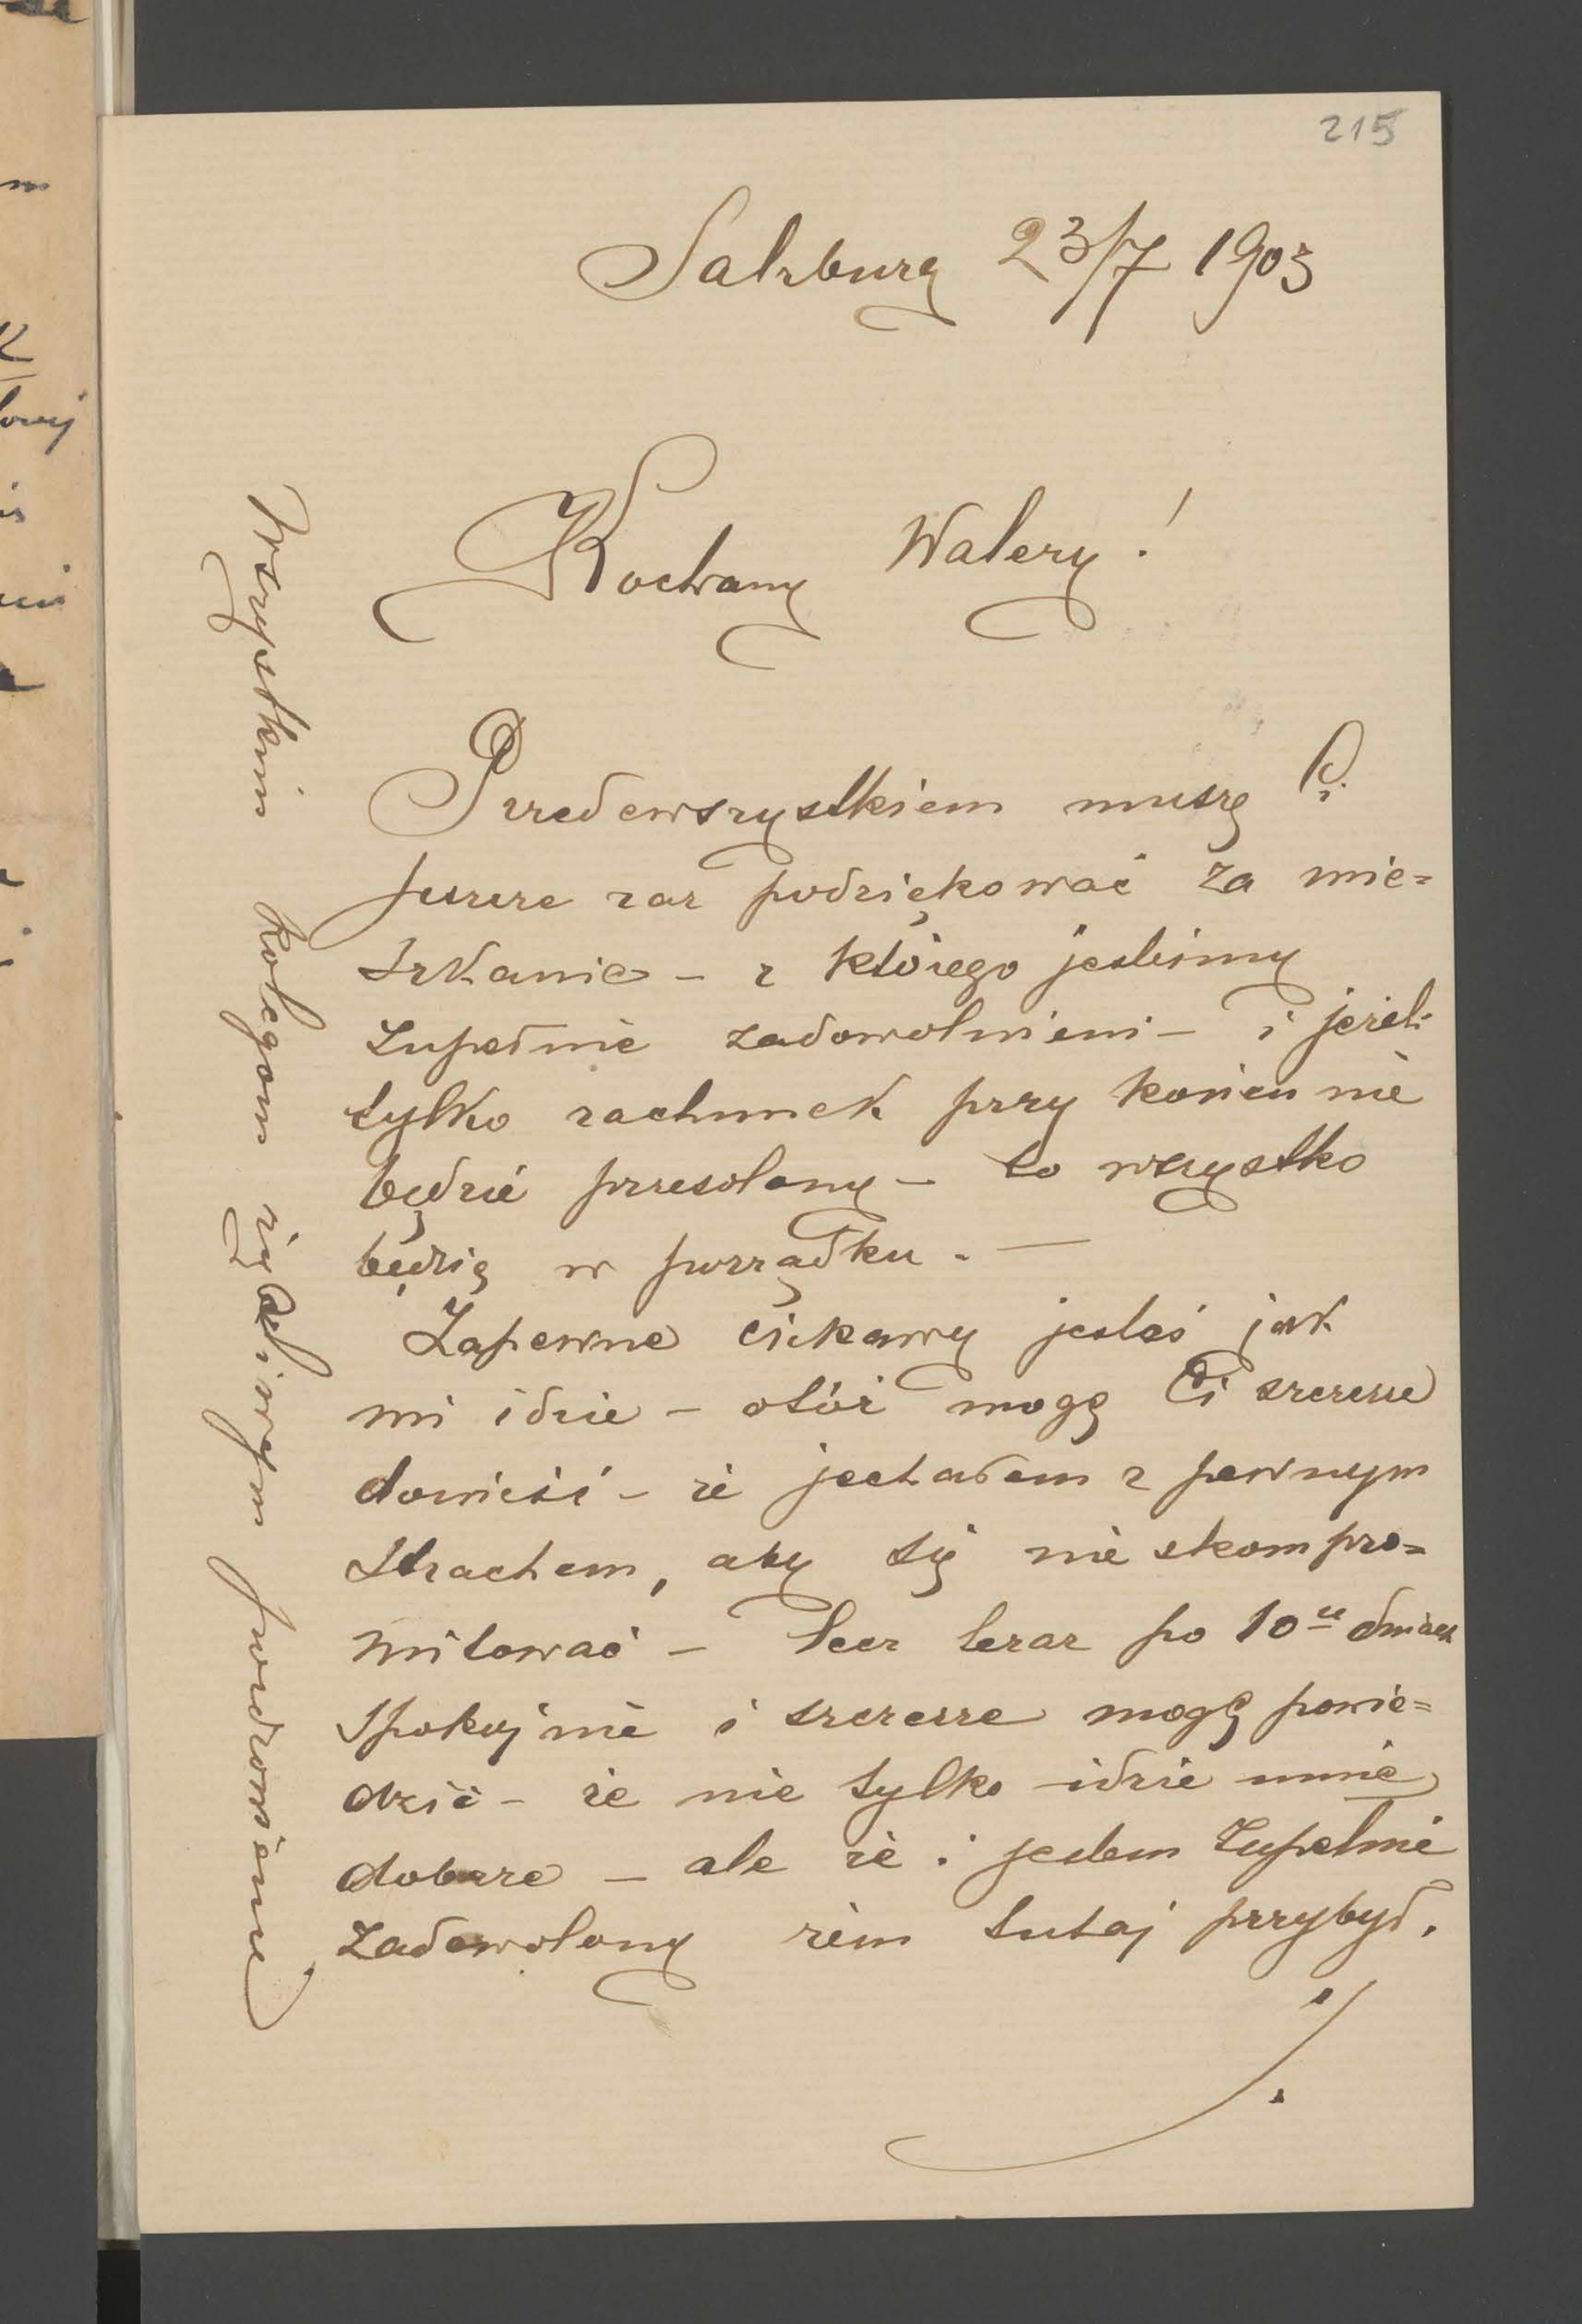 215
Salzburg 23/7 1903
Kochany Walery!
Przedewszystkiem muszę Ci
jeszcze raz podziękować za mie=
szkanie – z którego jesteśmy
zupełnie zadowolnieni – i jeżeli
tylko rachunek przy końcu nie
będzie przesolony – to wszystko
będzie w porządku. —
Zapewne ciekawy jesteś jak
mi idzie – otóż mogę Ci szczerze
donieść – że jechałem z pewnym
strachem, aby się nie skompro=
mitować – lecz teraz po 10u dniach
spokojnie i szczerze mogę powie=
dzieć – że nie tylko idzie mnie
dobrze – ale że i jestem zupełnie
zadowolony żem tutaj przybył.
./.
Wszystkim kolegom życzliwym pozdrowienie